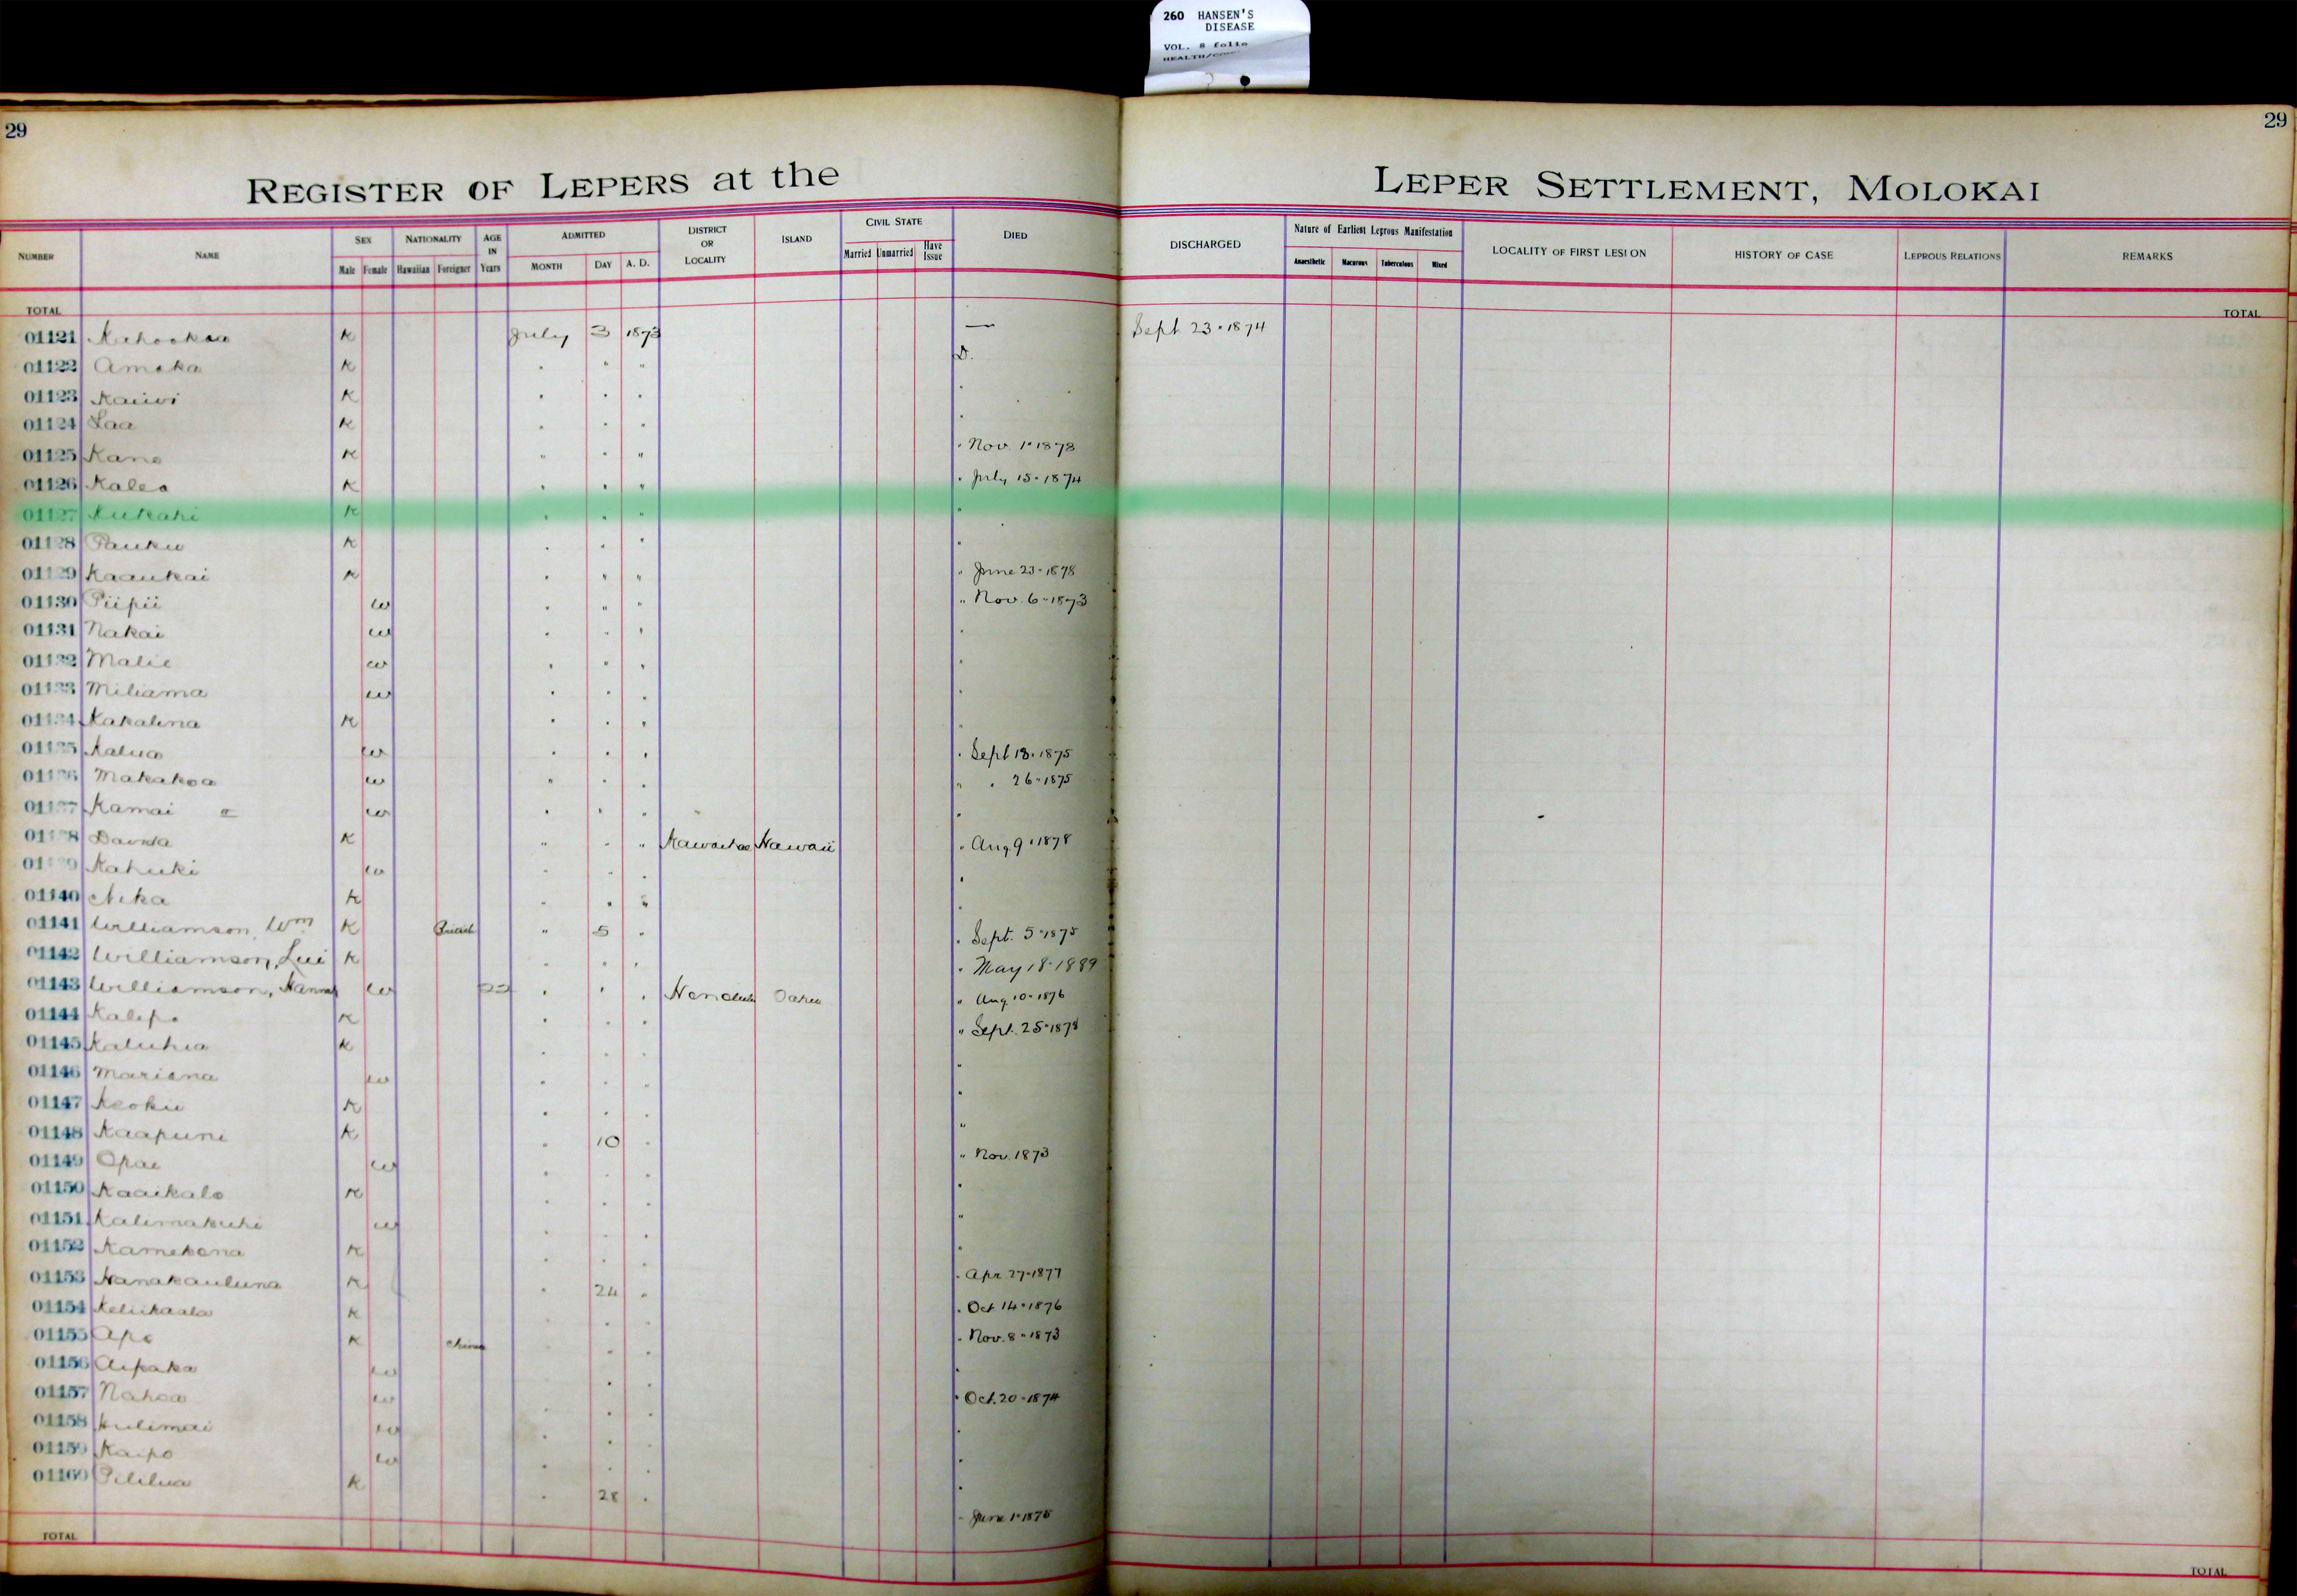 260 HANSEN'S
DISEASE
VOL. 8 folio
29
29
REGISTER OF LEPERS at the LEPER SETTLEMENT, MOLOKAI
NUMBER NAME SEX NATIONALITY AGE IN Years ADMITTED DISTRICT OR LOCALITY ISLAND CIVIL STATE DIED DISCHARGED Nature of Earliest Leprous Manifestation LOCALITY OF FIRST LESION HISTORY OF CASE LEPROUS RELATIONS REMARKS
Male Female Hawaiian Foreigner MONTH DAY A. D. Married Unmarried Have Issue Anaesthetic Macurous Tuberculous Mixed
TOTAL TOTAL
01121 K July 3 1873 — Sept 23 · 1874
01122 Amaka K " " " D.
01123 Kaiwi K " " " "
01124 Laa K " " " "
01125 Kane K " " " " Nov. 1 · 1878
01126 Kalea K " " " " July 15 · 1874
01127 Kukahi K " " " "
01128 Pauku K " " " "
01129 Kaaukai K " " " " June 23 · 1878
01130 Piipii w " " " " Nov. 6 · 1873
01131 Nakai w " " " "
01132 Malie w " " " "
01133 Miliama w " " " "
01134 Kakalina K " " " "
01135 Kalua w " " " " Sept 18 · 1875
01136 Makakoa w " " " " " 26 · 1875
01137 Kamai w " " " "
01138 K " " " Kawaihae Hawaii " Aug 9 · 1878
01139 Kahuki w " " " "
01140 Nika K " " " "
01141 Williamson, Wm K British " 5 " " Sept. 5 · 1875
01142 Williamson, Lui K " " " " May 18 · 1889
01143 Williamson, w " " " Honolulu Oahu " Aug. 10 · 1876
01144 Kalepo K " " " " Sept. 25 · 1878
01145 Kaluhia K " " " "
01146 Mariana w " " " "
01147 Keoku K " " " "
01148 Kaapuni K " 10 " "
01149 Opae w " " " " Nov. 1873
01150 Kaaikalo K " " " "
01151 Kalimakuhi w " " " "
01152 Kamekona K " " " "
01153 Nanakauluna K " 24 " " Apr 27 · 1877
01154 Keliikaala K " " " " Oct 14 · 1876
01155 Apo K China " " " " Nov. 8 · 1873
01156 Aipaka w " " " "
01157 Nahoa w " " " " Oct. 20 · 1874
01158 Hulimai w " " " "
01159 Kaipo w " " " "
01160 Pililua K " 28 " " June 1 · 1875
TOTAL TOTAL